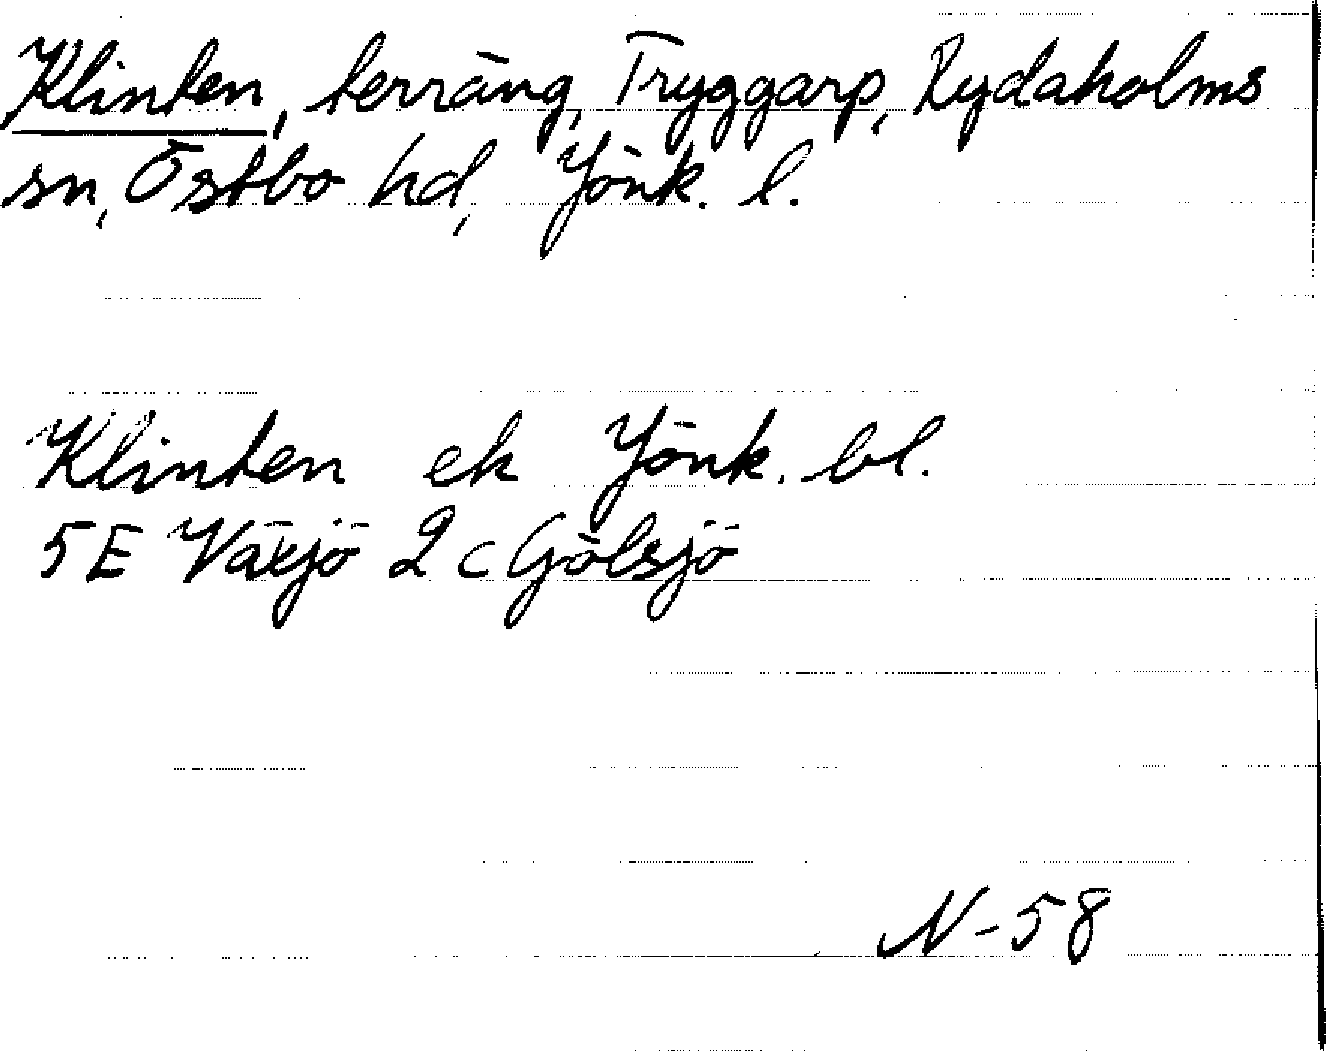 Klinten, terräng, Tryggarp, Rydaholms
sn, Östbo hd, Jönk. l.
Klinten ek Jönk. bl.
5E Växjö 2c Gölsjö
N-58